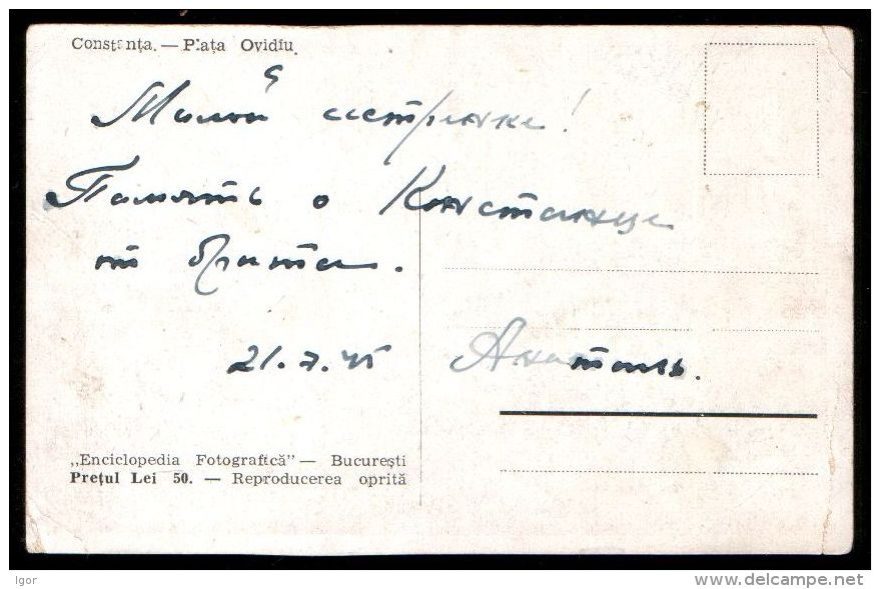 Constanţa. — Piaţa Ovidiu.
Милой сестричке!
Память о Констанце
от брата.
21.7.45 Анатоль.
„Enciclopedia Fotografică" — Bucureşti
Preţul Lei 50. — Reproducerea oprită
Igor
www.delcampe.net